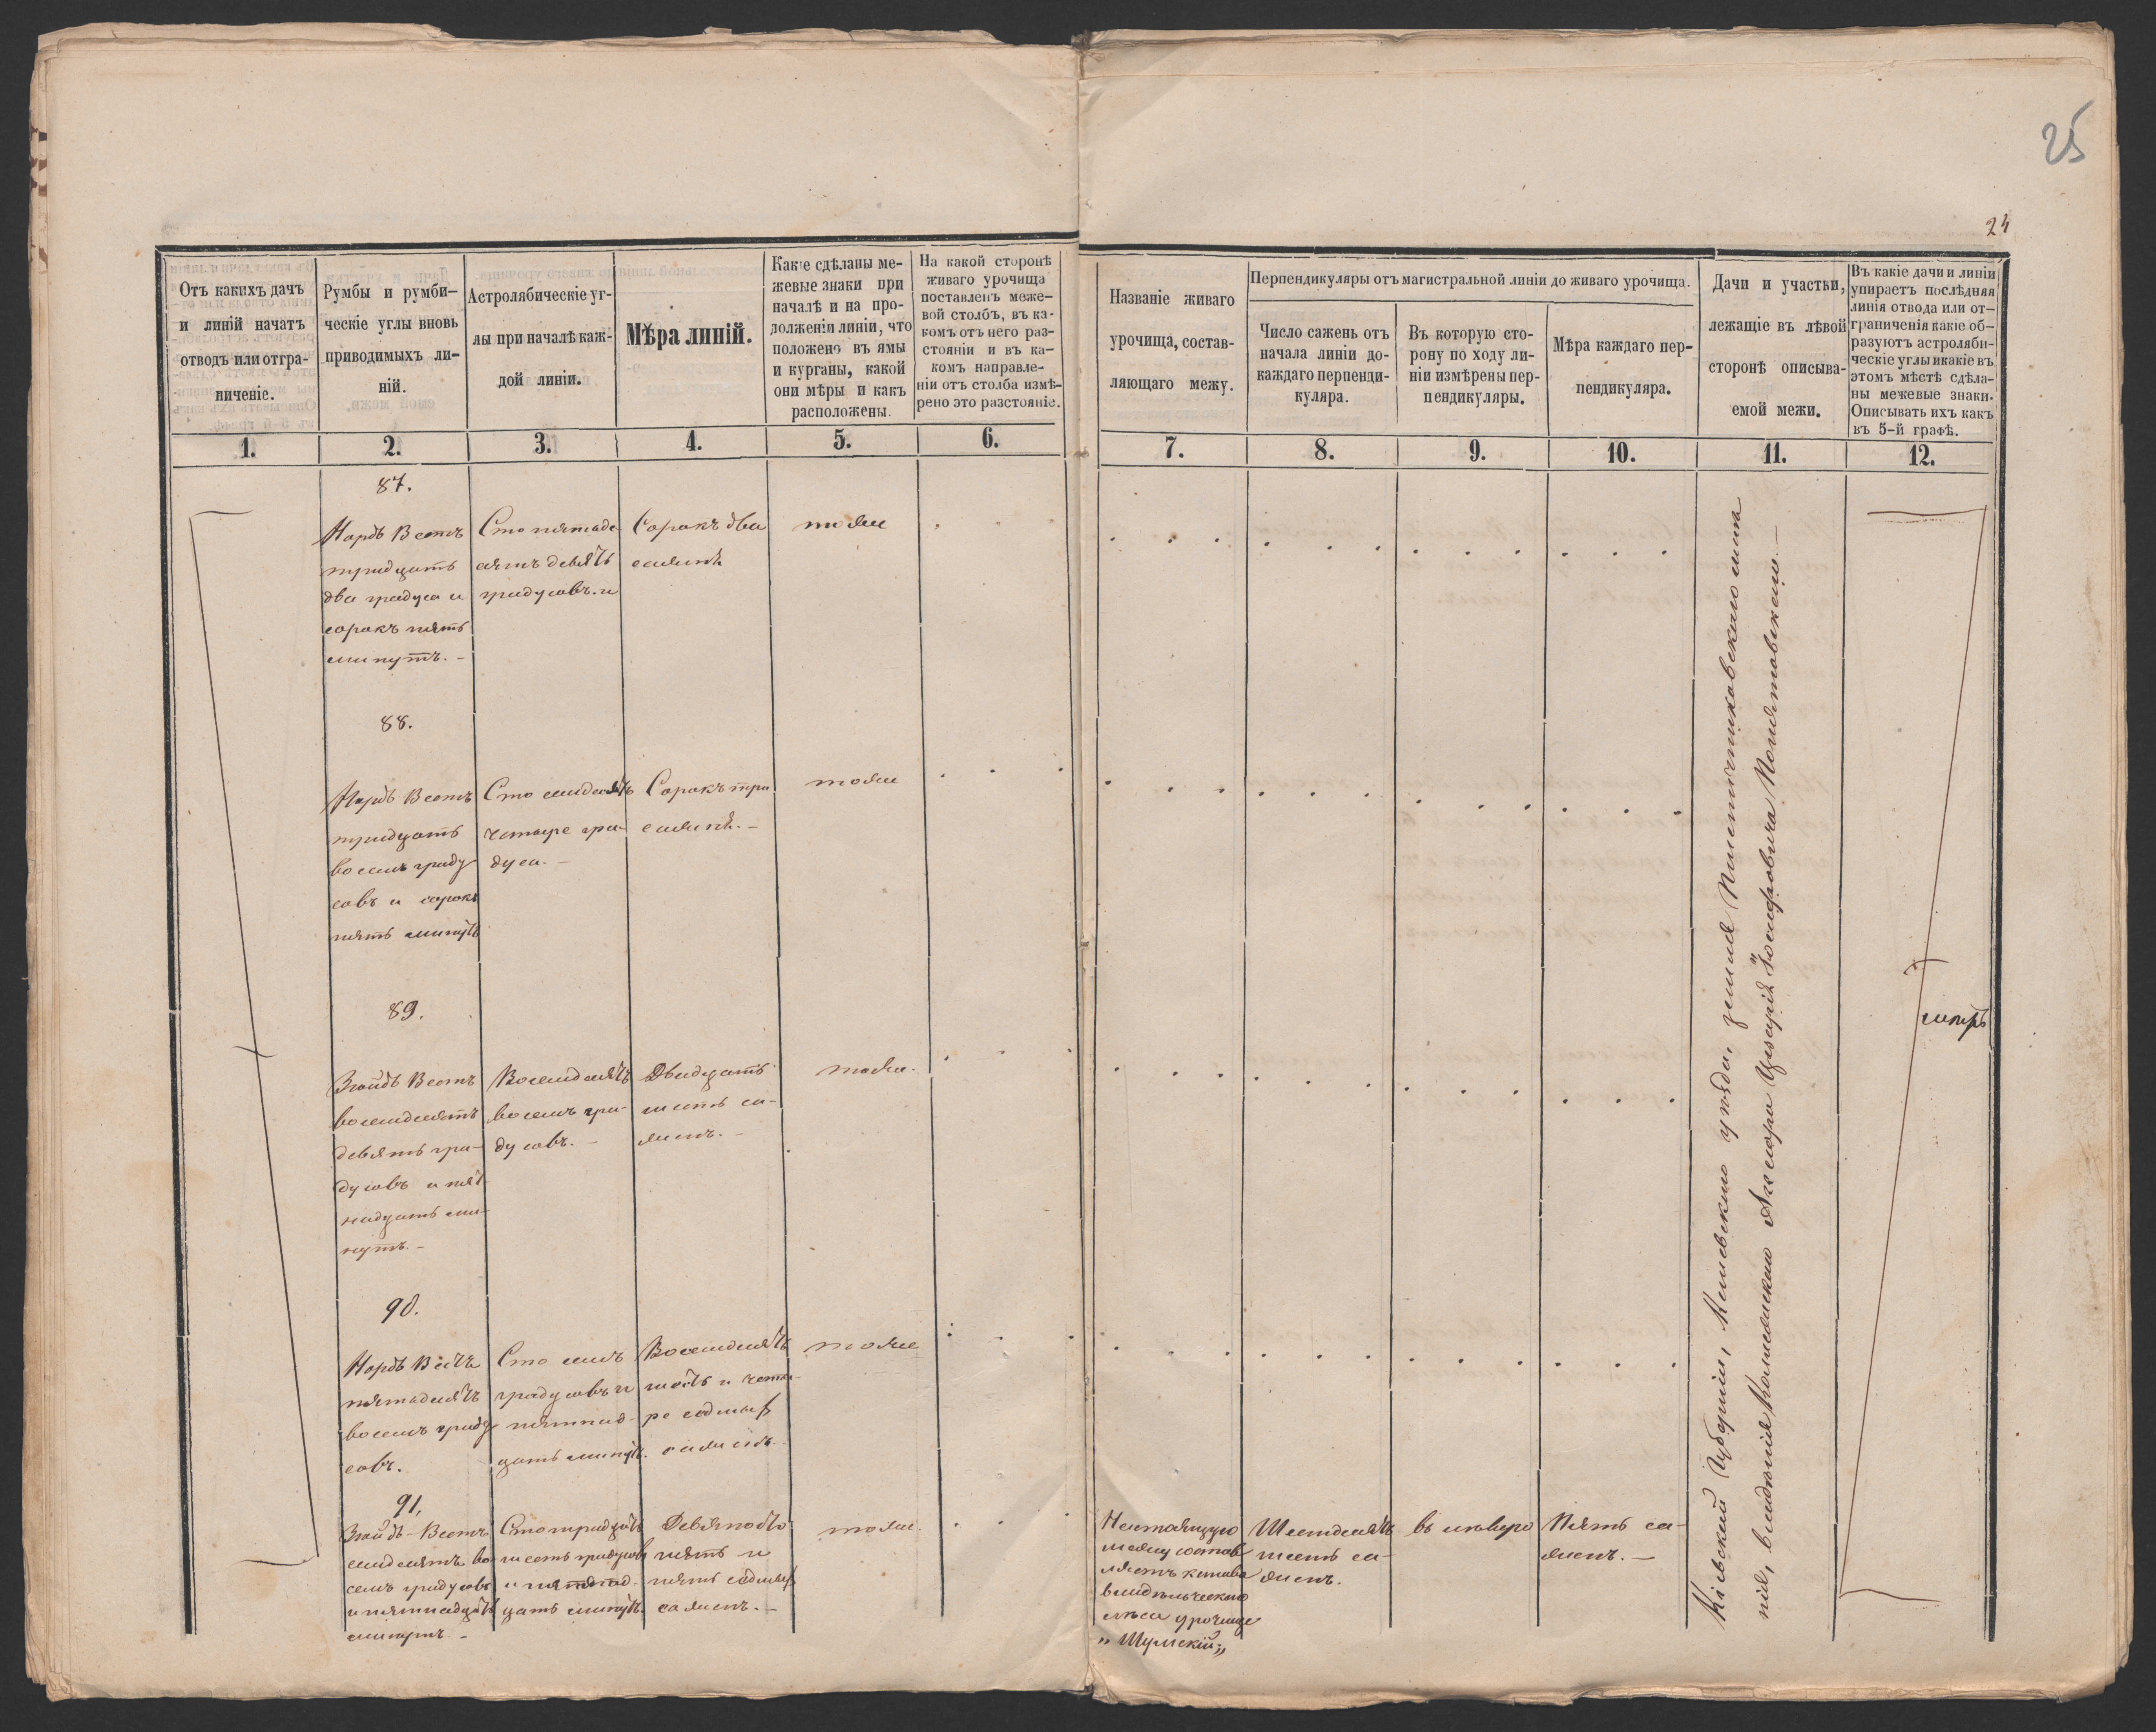 25
24
Отъ какихъ дачъ
и линій начатъ
отводъ или отгра-
ниченіе.
Румбы и румби-
ческіе углы вновь
приводимыхъ ли-
ній.
Астролябическіе уг-
лы при началѣ каж-
дой линіи.
Мѣра линій.
Какіе сдѣланы ме-
жевые знаки при
началѣ и на про-
долженіи линіи, что
положено въ ямы
и курганы, какой
они мѣры и какъ
расположены.
На какой сторонѣ
живаго урочища
поставленъ меже-
вой столбъ, въ ка-
комъ отъ него раз-
стояніи и въ ка-
комъ направле-
ніи отъ столба измѣ-
рено это разстояніе.
Названіе живаго
урочища, состав-
ляющаго межу.
Перпендикуляры отъ магистральной линіи до живаго урочища.
Число сажень отъ
начала линіи до-
каждаго перпенди-
куляра.
Въ которую сто-
рону по ходу ли-
ніи измѣрены пер-
пендикуляры.
Мѣра каждаго пер-
пендикуляра.
Дачи и участки,
лежащіе въ лѣвой
сторонѣ описыва-
емой межи.
Въ какіе дачи и линіи
упираетъ послѣдняя
линія отвода или от-
граниченія какіе об-
разуютъ астроляби-
ческіе углы и какіе въ
этомъ мѣстѣ сдѣла-
ны межевые знаки.
Описывать ихъ какъ
въ 5-й графѣ.
1. 2. 3. 4. 5. 6. 7. 8. 9. 10. 11. 12.
87.
Нордъ Вестъ
тридцать
два градуса и
сорокъ пять
минутъ. –
Сто пятьде-
сятъ девять
градусовъ. и
Сорокъ два
сажня
тоже
88.
Нордъ Вестъ
тридцать
восемь граду-
совъ и сорокъ
пять минутъ
Сто семдесятъ
четыре гра-
дуса. –
Сорокъ три
сажня. –
тоже
89.
Зюйдъ Вестъ
восемдесятъ
девять гра-
дусовъ и пят-
надцать ми-
нутъ. –
Восемдесятъ
восемь гра-
дусовъ. –
Двадцать
шесть са-
жень. –
тоже.
90.
Нордъ Вестъ
пятьдесятъ
восемь граду-
совъ.
Сто семь
градусовъ и
пятнад-
цать минутъ.
Восемдесятъ
шесть и четы-
ре седмыхъ
сажень.
тоже
91.
Зюйдъ-Вестъ
семдесятъ во-
семь градусовъ
и пятнадцать
минутъ. –
Сто тридцать
шесть градусовъ
и пятнад-
цать минутъ.
Девяносто
пять и
пять седмыхъ
сажень. –
тоже.
Настоящую
межу состав-
ляетъ канава
владѣльческаго
лѣса урочище
„Шумскій„
Шестдесятъ
шесть са-
жень.
въ лѣвую
Пять са-
жень. –
Кіевской Губерніи, Кіевскаго уѣзда, земля
нія, владѣнія Коллежскаго Ассесора Цезарія Іосифовича Понятовскаго. –